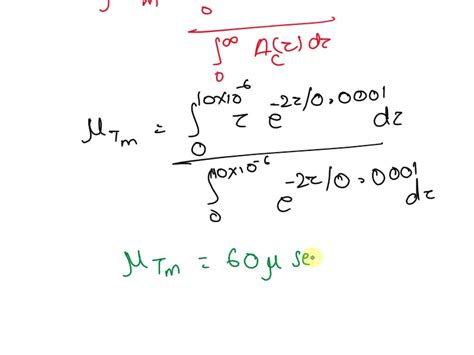 0
∫₀^∞ A_c(τ) dτ
μ_Tm = ∫₀^(10×10⁻⁶) τ e^(-2τ/0.0001) dτ
∫₀^(10×10⁻⁶) e^(-2τ/0.0001) dτ
μ_Tm = 60 μ se